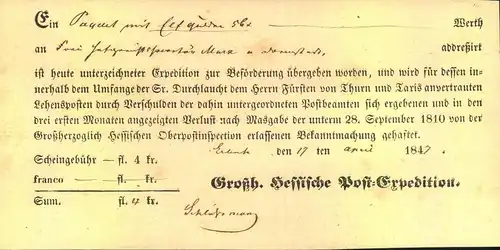 Ein Paquet mit Elf Gulden 56x Werth
an Frau Hofgerichtssecretär Marx in Darmstadt, addreßirt
ist heute unterzeichneter Expedition zur Beförderung übergeben worden, und wird für dessen in-
nerhalb dem Umfange der Sr. Durchlaucht dem Herrn Fürsten von Thurn und Taxis anvertrauten
Lehensposten durch Verschulden der dahin untergeordneten Postbeamten sich ergebenen und in den
drei ersten Monaten angezeigten Verlust nach Masgabe der unterm 28. September 1810 von der
Großherzoglich Hessischen Oberpostinspection erlassenen Bekanntmachung gehaftet.
den 17 ten April 1847.
Scheingebühr — fl. 4 kr.
franco — — fl. kr.
Großh. Hessische Post-Expedition.
Sum. fl. 4 kr.